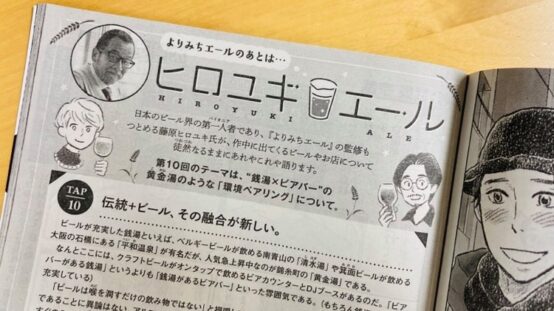 よりみちエールのあとは…
ヒロユキ エール
HIROYUKI ALE
日本のビール界の第一人者であり、『よりみちエール』の監修も
つとめる藤原ヒロユキ氏が、作中に出てくるビールやお店について
徒然なるままにあれやこれや語ります。
第10回のテーマは、"銭湯×ビアバー"の
黄金湯のような「環境ペアリング」について。
TAP
10
伝統+ビール、その融合が新しい。
ビールが充実した銭湯といえば、ベルギービールが飲める南青山の「清水湯」や箕面ビールが飲める
大阪の石橋にある「平和温泉」が有名だが、人気急上昇中なのが錦糸町の「黄金湯」である。
なんとここには、クラフトビールがオンタップで飲めるビアカウンターとDJブースがあるのだ。「ビア
バーがある銭湯」というよりも「銭湯があるビアバー」といった雰囲気である。(もちろん
充実している)
「ビールは喉を潤すだけの飲み物ではない」と
であることに異論はない。